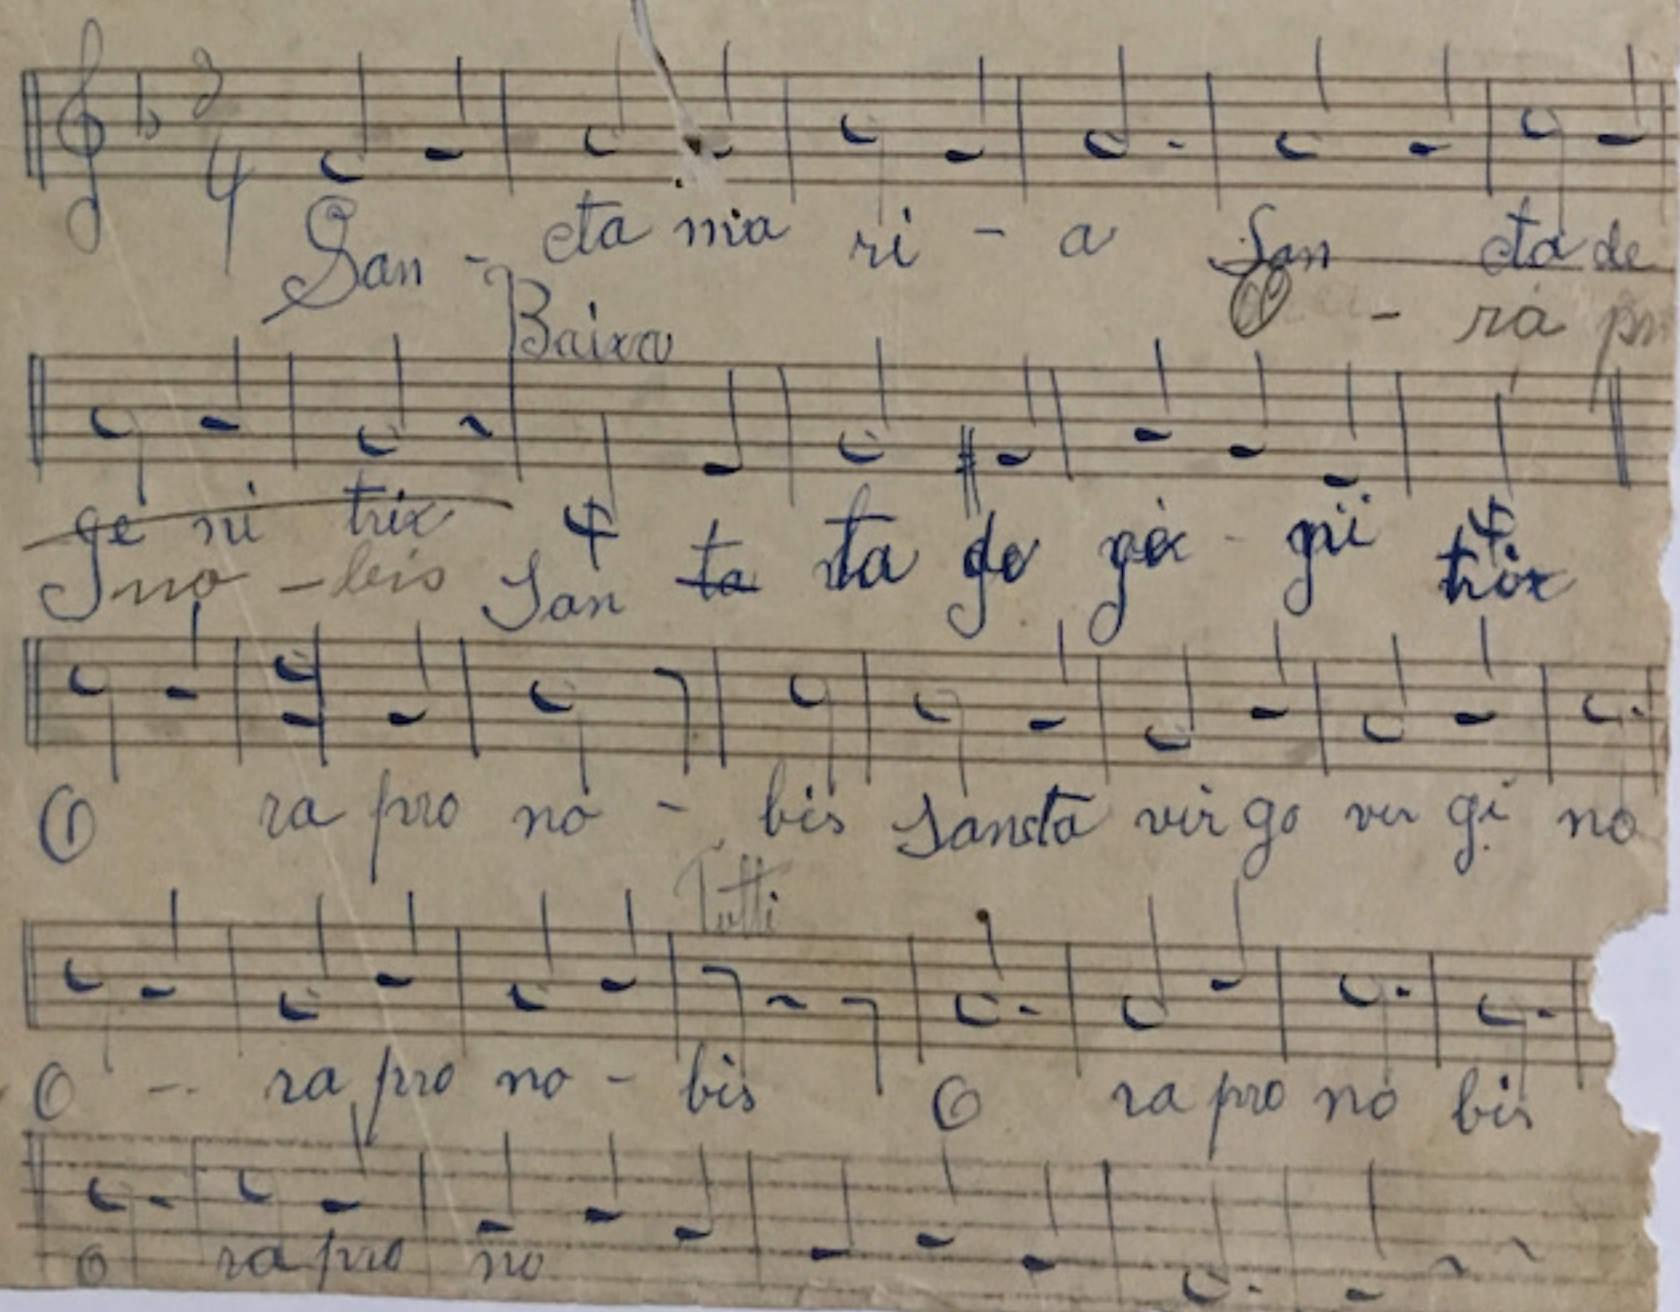 3
4
San - cta ma ri - a San cta de
O - ra pr
Baixa
ge ni trix San ta cta de
no - bis trix
O ra pro no - bis Sancta vir go vir gi no
Tutti
O - ra pro no - bis O ra pro no bis
O ra pro no